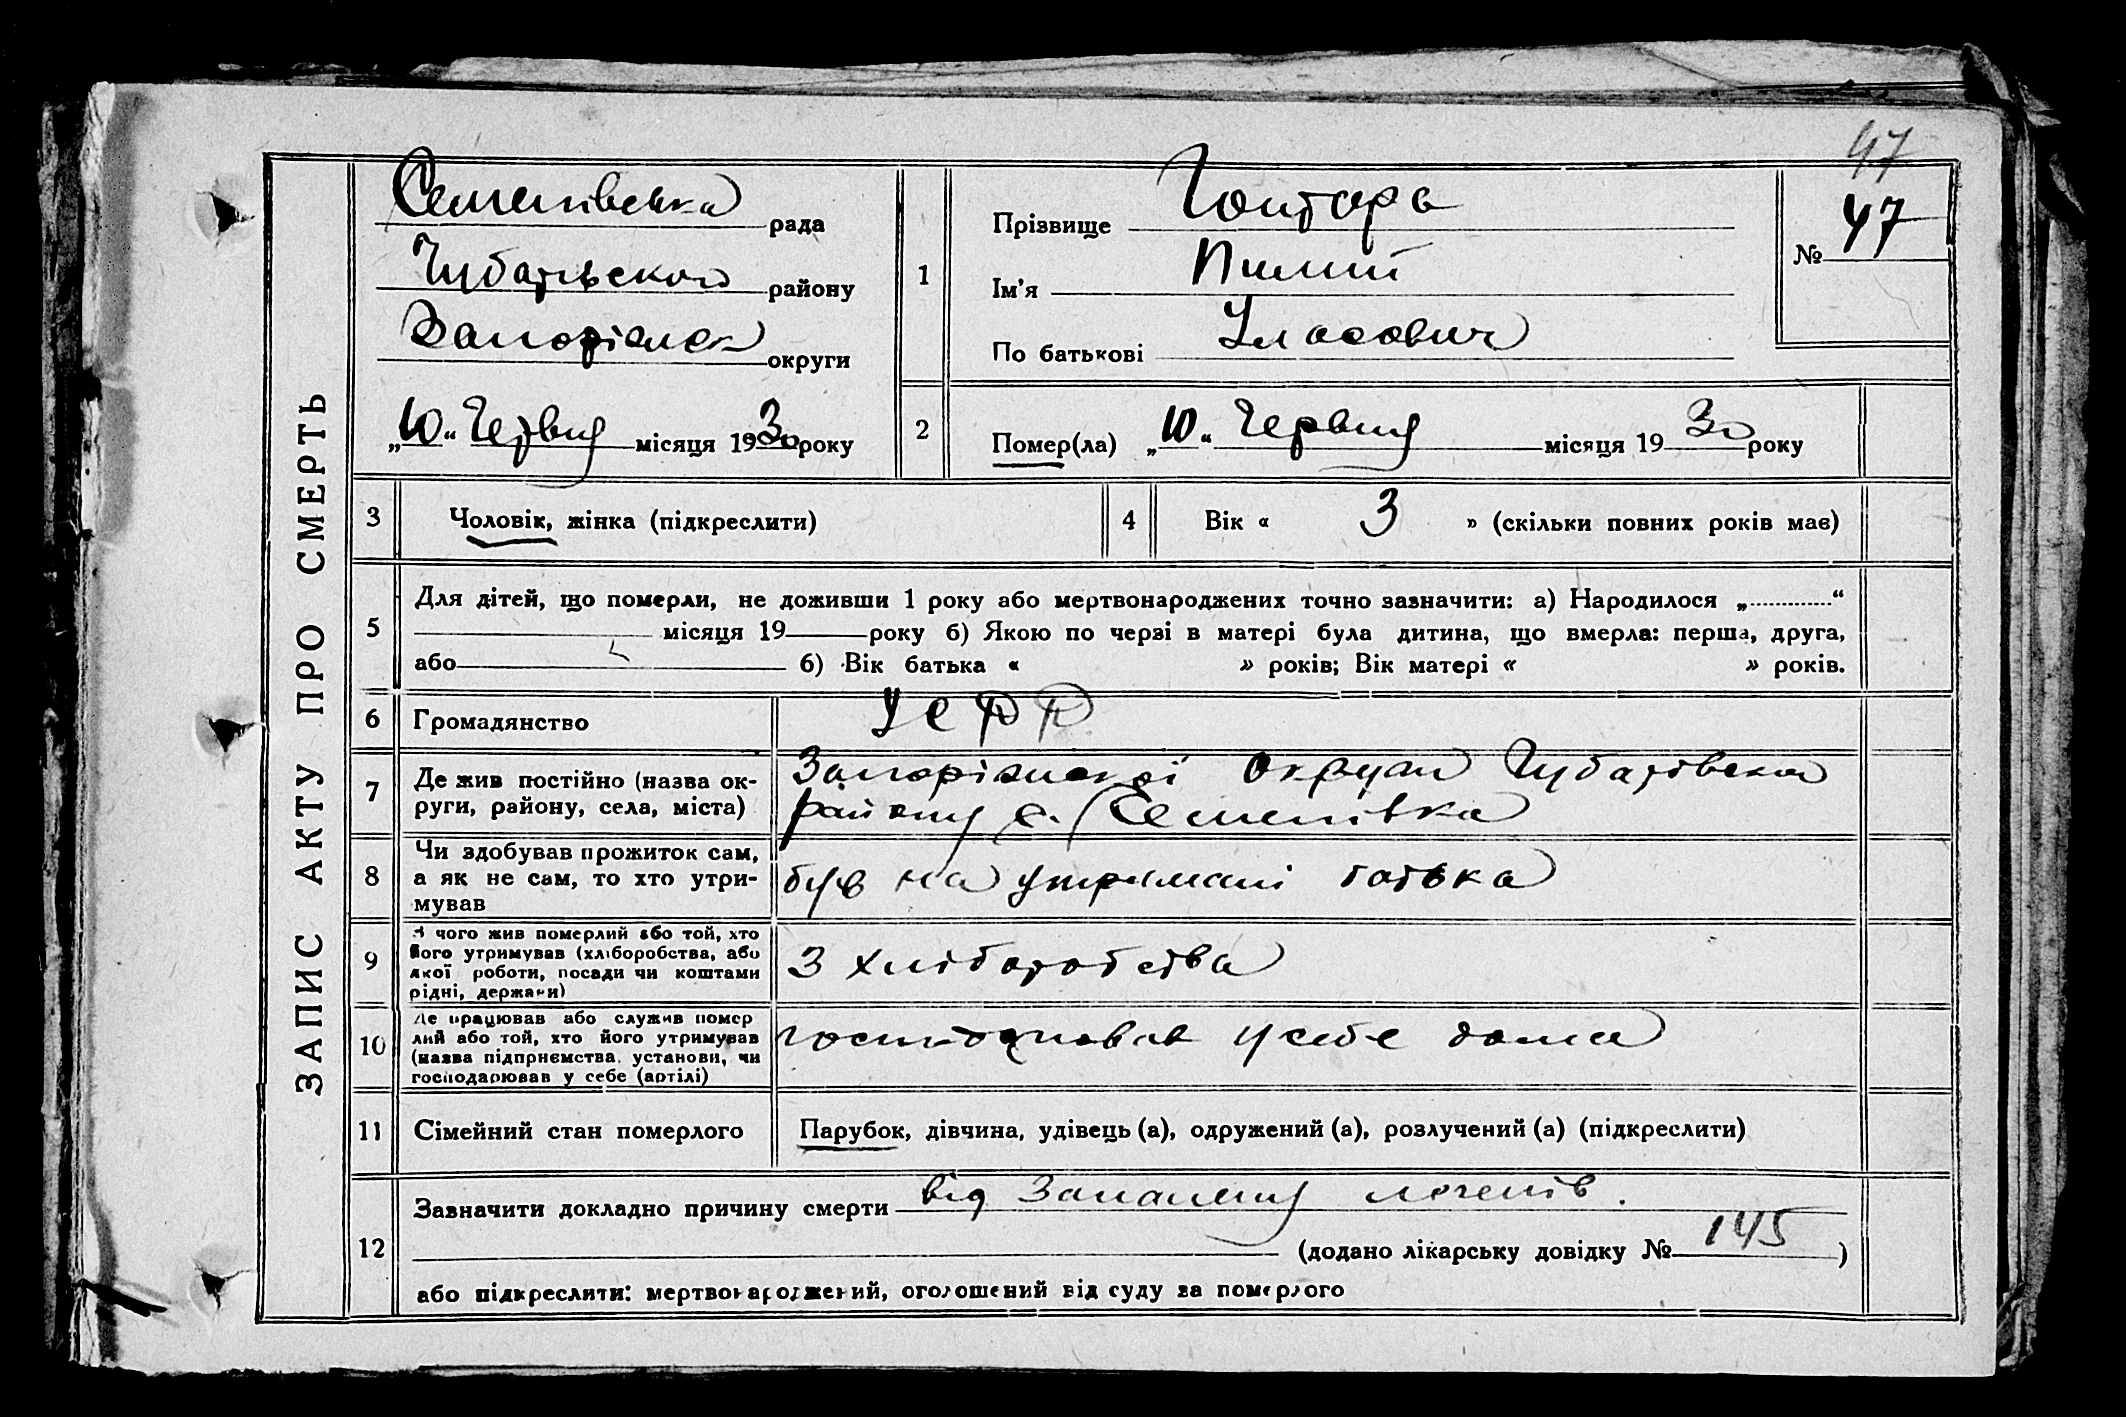 47
ЗАПИС АКТУ ПРО СМЕРТЬ
Семенівська рада
Чубарівського району
Запоріжск округи
„10“ Червня місяця 1930 року
1
Прізвище Гонтарь
Ім'я Пилип
По батькові Уласович
№ 47
2
Помер(ла) „10“ Червня місяця 1930 року
3 Чоловік, жінка (підкреслити)
4 Вік « 3 » (скільки повних років має)
5
Для дітей, що померли, не доживши 1 року або мертвонароджених точно зазначити: а) Народилося „............“
місяця 19 року б) Якою по черзі в матері була дитина, що вмерла: перша, друга,
або б) Вік батька « » років; Вік матері « » років.
6 Громадянство УСРР
7
Де жив постійно (назва ок- Запоріжської Округи Чубарівського
руги, району, села, міста) району с. Семенівка
8
Чи здобував прожиток сам,
а як не сам, то хто утри- був на утримані батька
мував
9
З чого жив померлий або той, хто
його утримував (хліборобства, або З хліборобства
якої роботи, посади чи коштами
рідні, держави)
10
Де працював або служив помер
лий або той, хто його утримував господарював у себе дома
(назва підприємства, установи, чи
господарював у себе (артілі)
11 Сімейний стан померлого Парубок, дівчина, удівець (а), одружений (а), розлучений (а) (підкреслити)
12
Зазначити докладно причину смерти від Запаленя легенів.
(додано лікарську довідку № 145)
або підкреслити: мертвонароджений, оголошений від суду за померлого